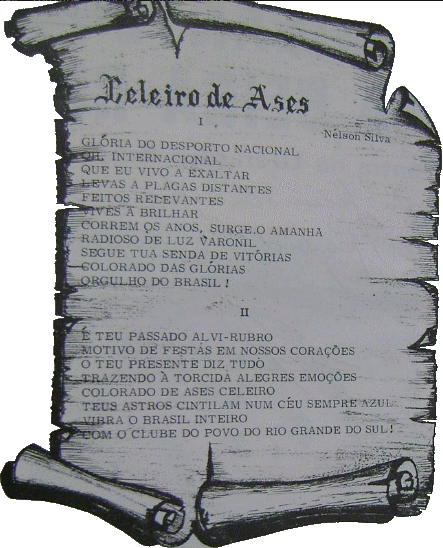 Celeiro de Ases
I
Nélson Silva
GLÓRIA DO DESPORTO NACIONAL
OH, INTERNACIONAL
QUE EU VIVO A EXALTAR
LEVAS A PLAGAS DISTANTES
FEITOS RELEVANTES
VIVES A BRILHAR
CORREM OS ANOS, SURGE O AMANHA
RADIOSO DE LUZ VARONIL
SEGUE TUA SENDA DE VITÓRIAS
COLORADO DAS GLÓRIAS
ORGULHO DO BRASIL !
II
É TEU PASSADO ALVI-RUBRO
MOTIVO DE FESTAS EM NOSSOS CORAÇÕES
O TEU PRESENTE DIZ TUDO
TRAZENDO À TORCIDA ALEGRES EMOÇÕES
COLORADO DE ASES CELEIRO
TEUS ASTROS CINTILAM NUM CÉU SEMPRE AZUL
VIBRA O BRASIL INTEIRO
COM O CLUBE DO POVO DO RIO GRANDE DO SUL!